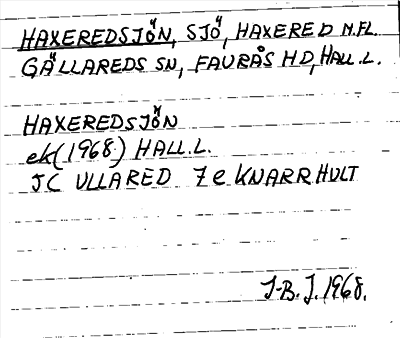 HAXEREDSJÖN, SJÖ, HAXERED M.FL.
GÄLLAREDS SN, FAURÅS HD, HALL.L.
HAXEREDSJÖN
ek(1968) HALL.L.
JC ULLARED 7e KNARRHULT
J-B.J. 1968.